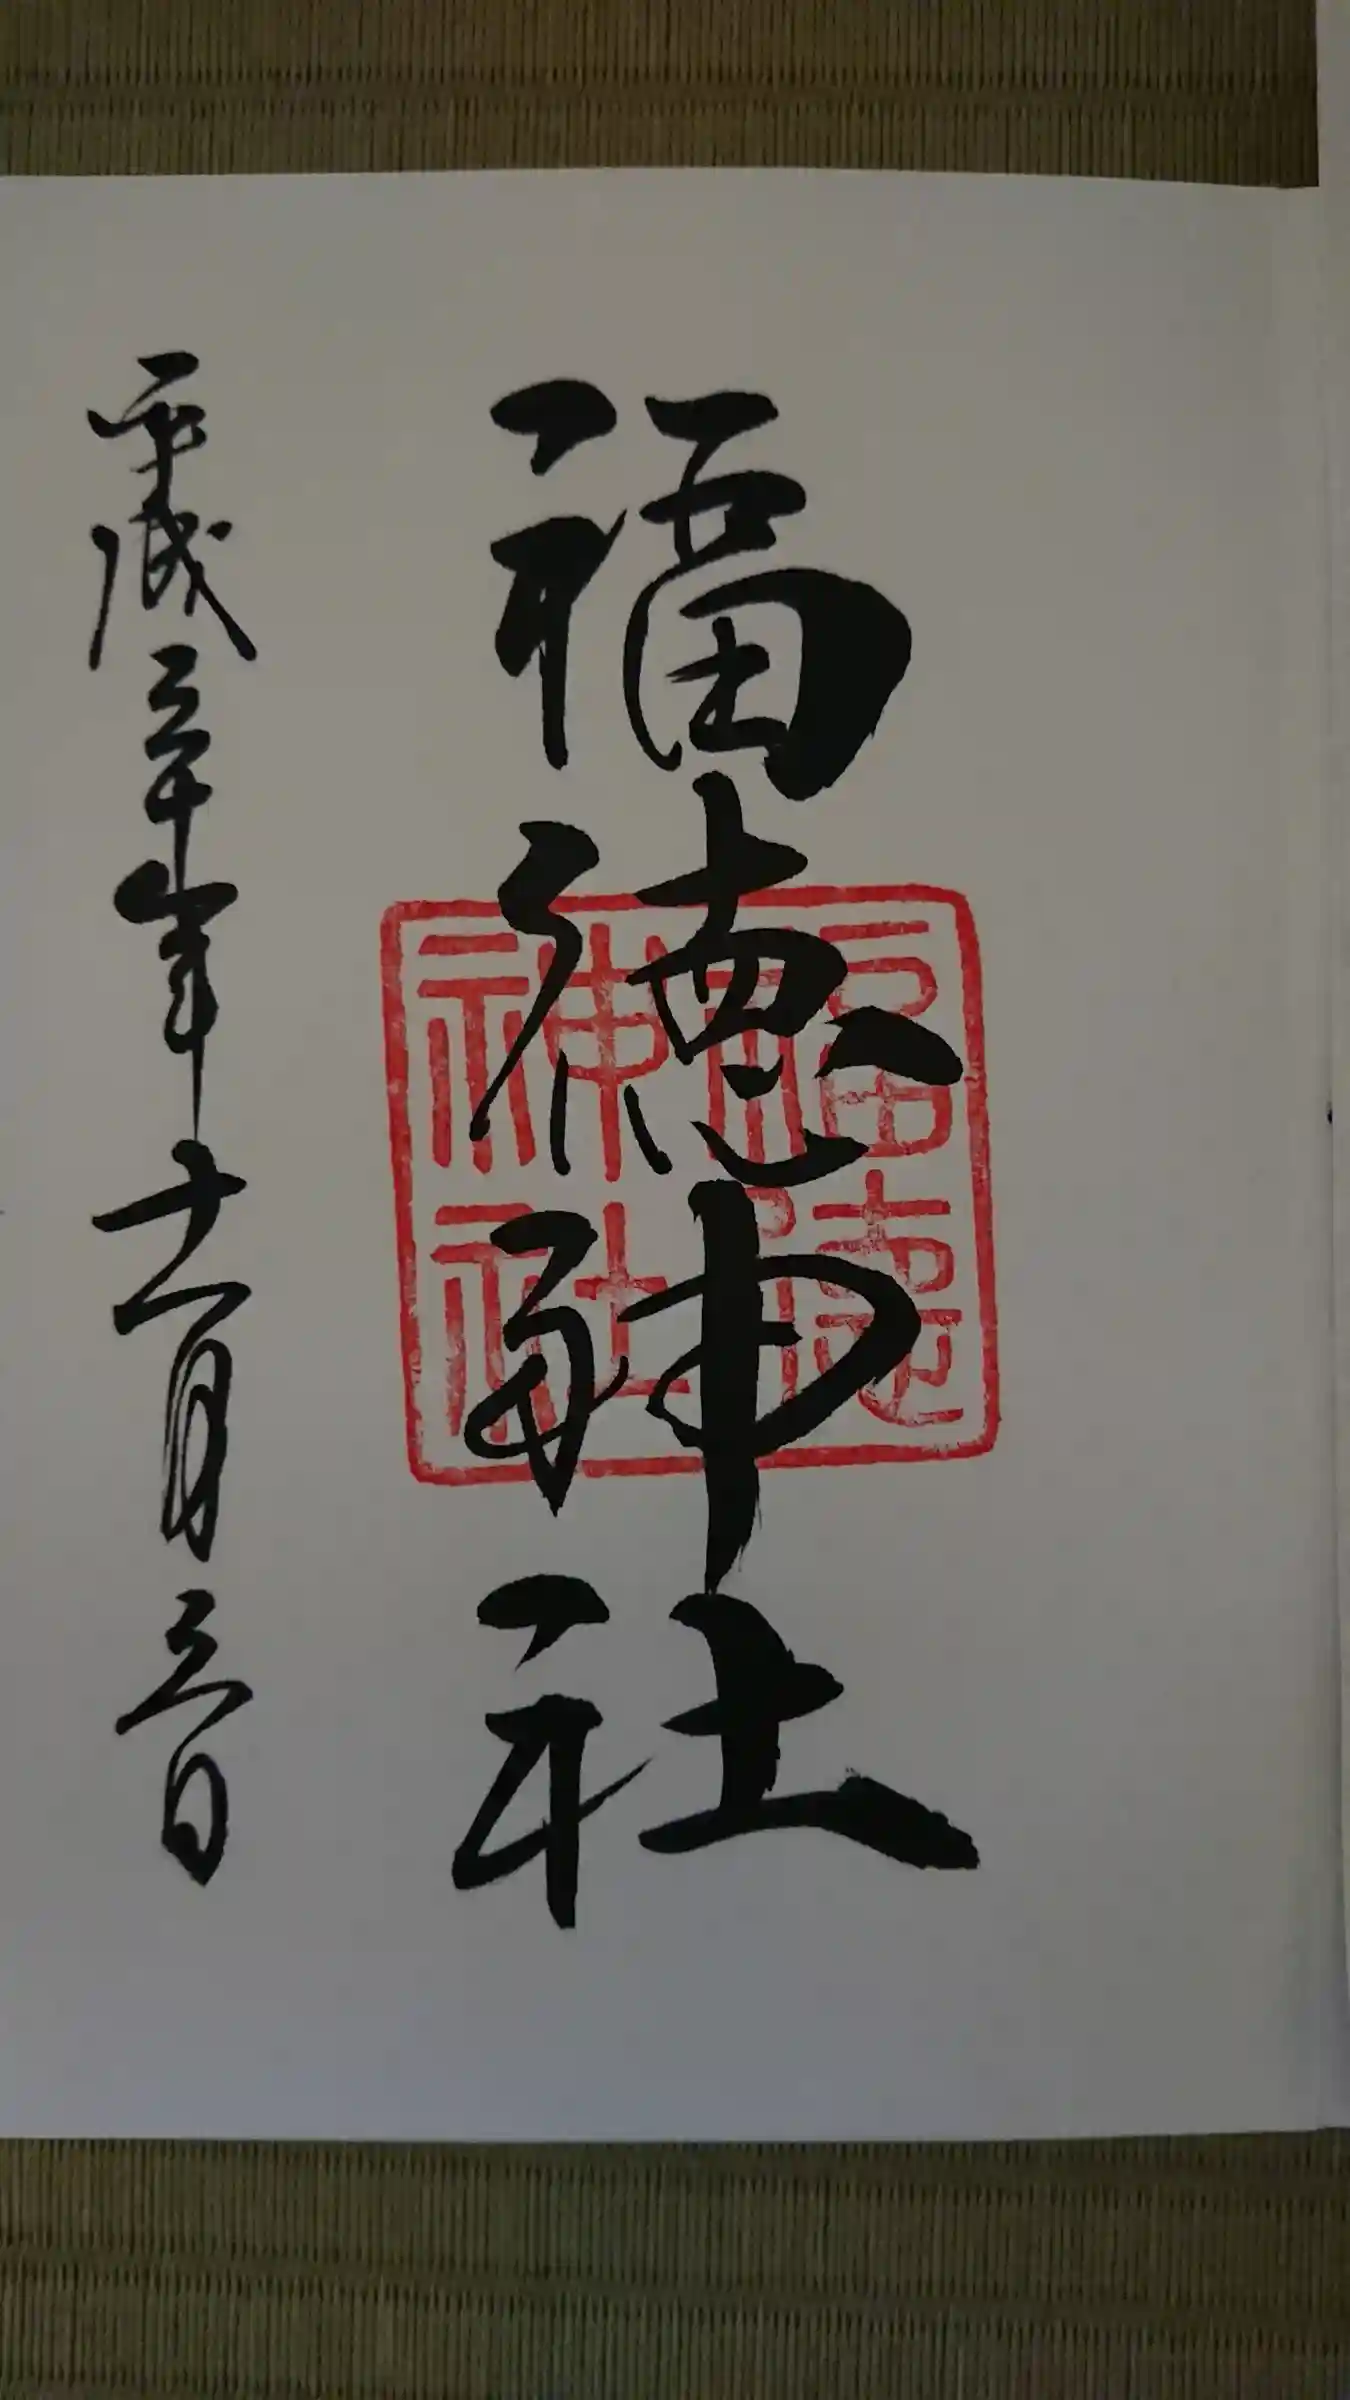 福徳神社
福徳
神社
平成三十年十一月三日